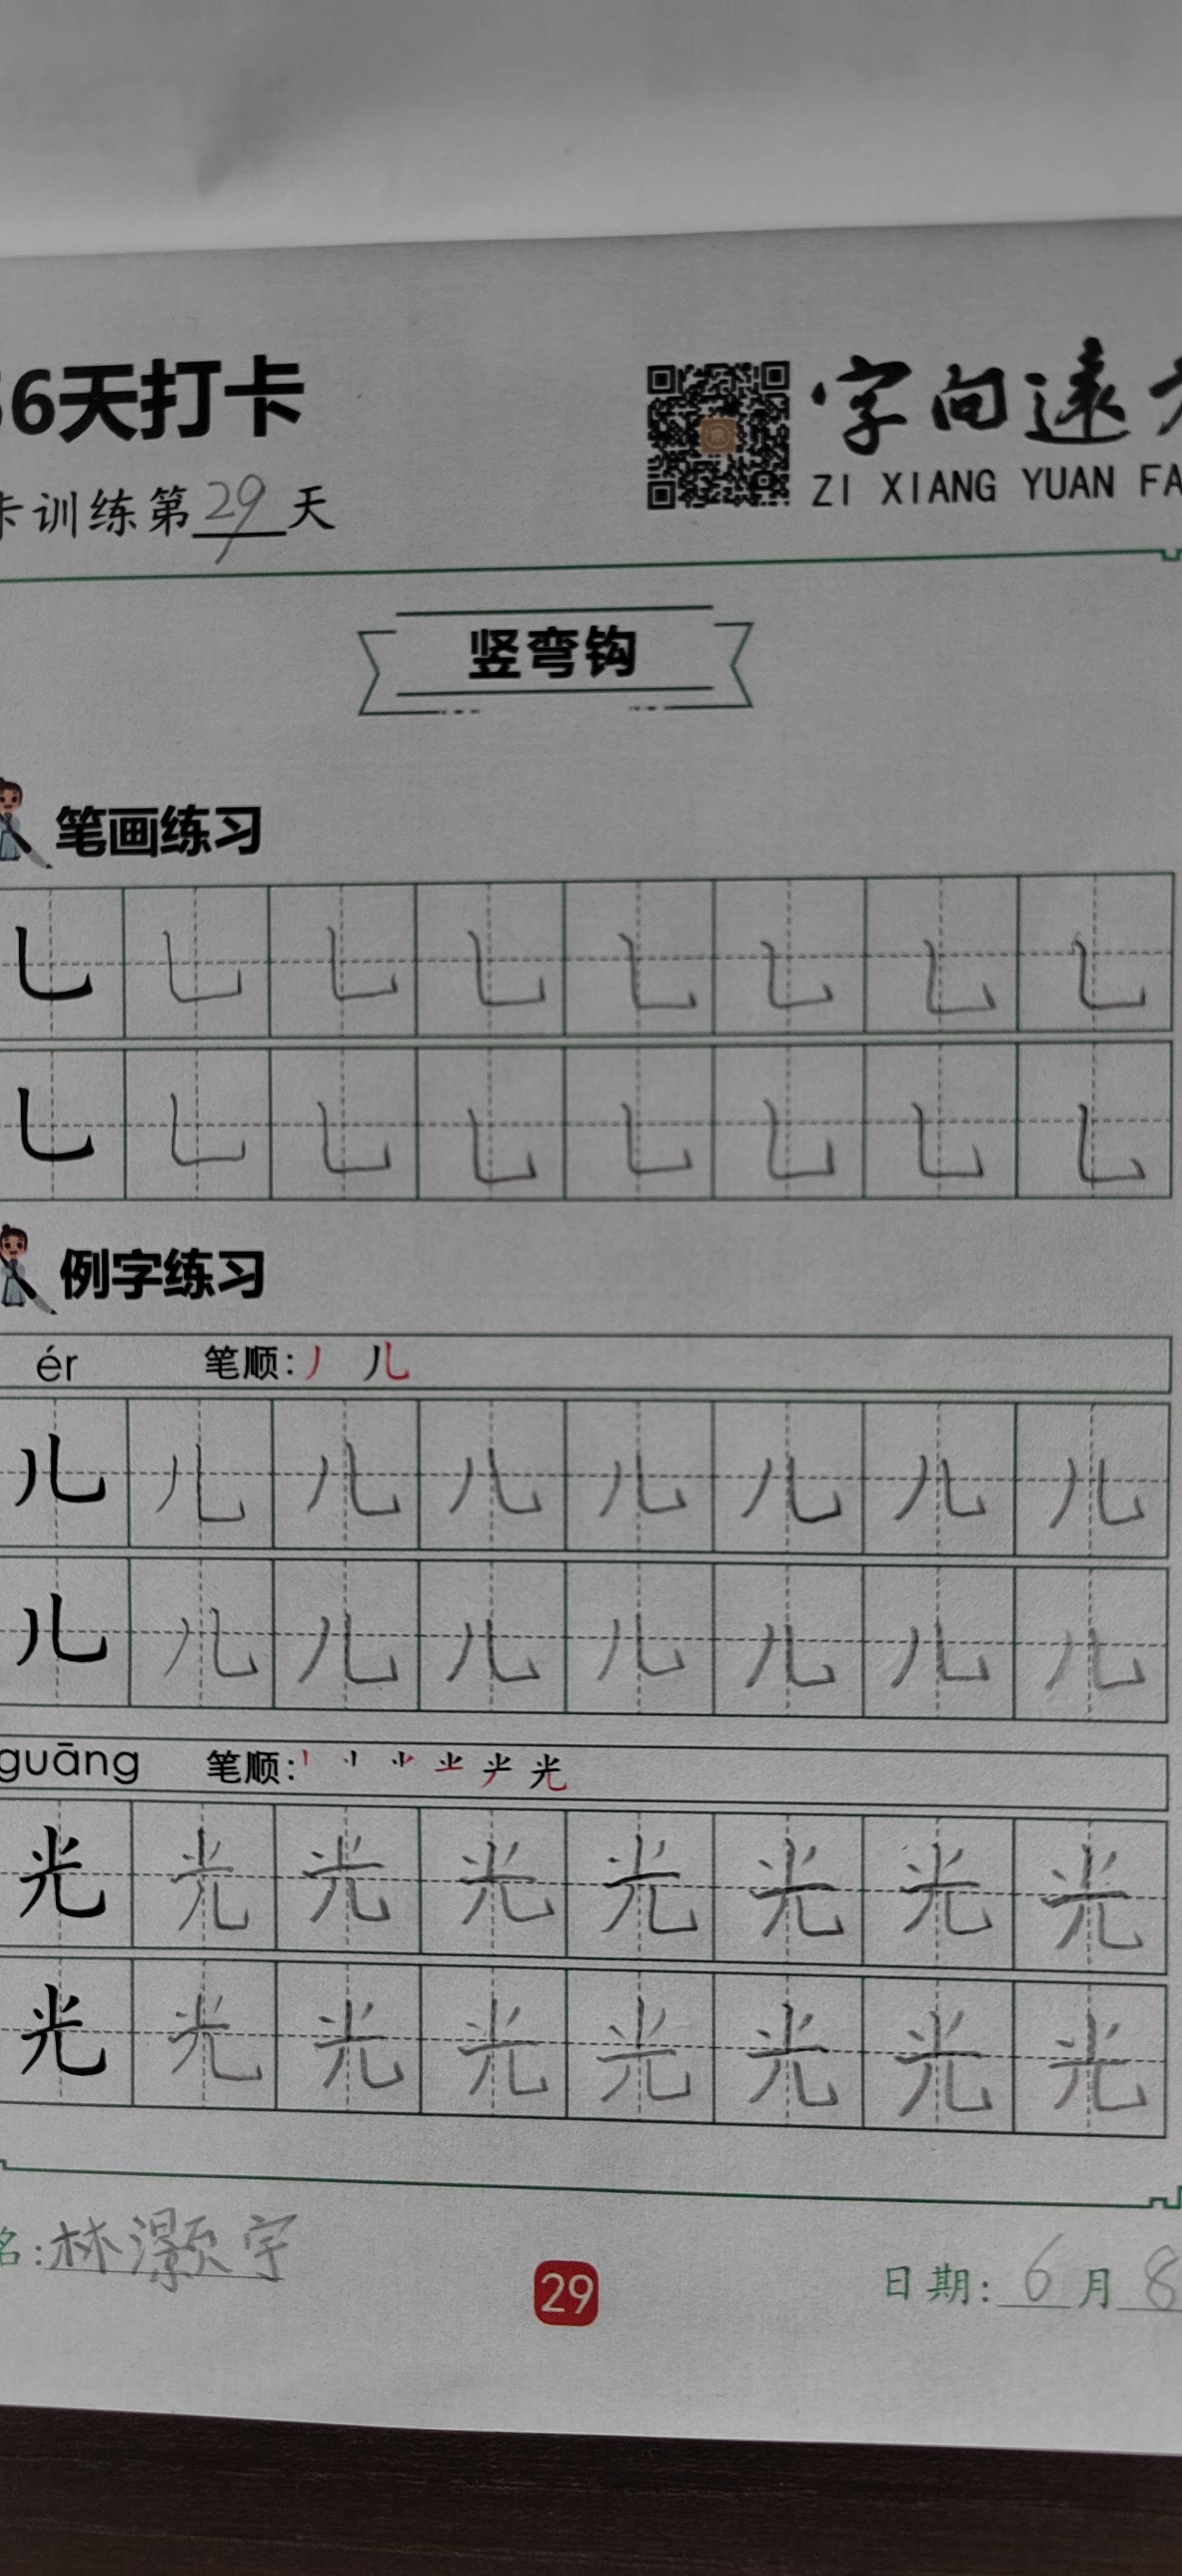 6天打卡
字向遠
ZI XIANG YUAN FA
卡训练第29天
竖弯钩
笔画练习
乚 乚 乚 乚 乚 乚 乚 乚
乚 乚 乚 乚 乚 乚 乚 乚
例字练习
ér 笔顺: 丿 儿
儿 儿 儿 儿 儿 儿 儿 儿
儿 儿 儿 儿 儿 儿 儿 儿
guāng 笔顺: 光
光 光 光 光 光 光 光 光
光 光 光 光 光 光 光 光
名: 林灏宇
29
日期: 6月8